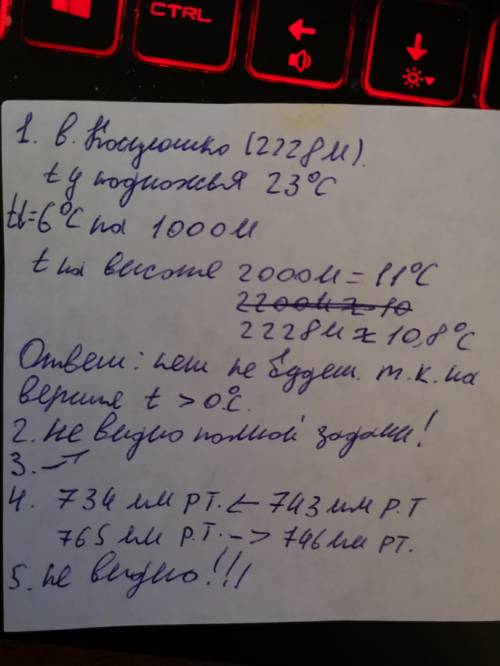 CTRL
1. в. Косцюшко (2228м).
t у подножья 23°C
t↓=6°C на 1000м
t на высоте 2000м = 11°C
2200м ≈ 10
2228м ≈ 10,8°C
Ответ: нет не будет. т.к. на
вершине t > 0°C.
2. не видно полной задачи!
3. –"–
4. 734 мм рт. <- 743 мм р.т
765 мм р.т. -> 746 мм рт.
5. не видно!!!